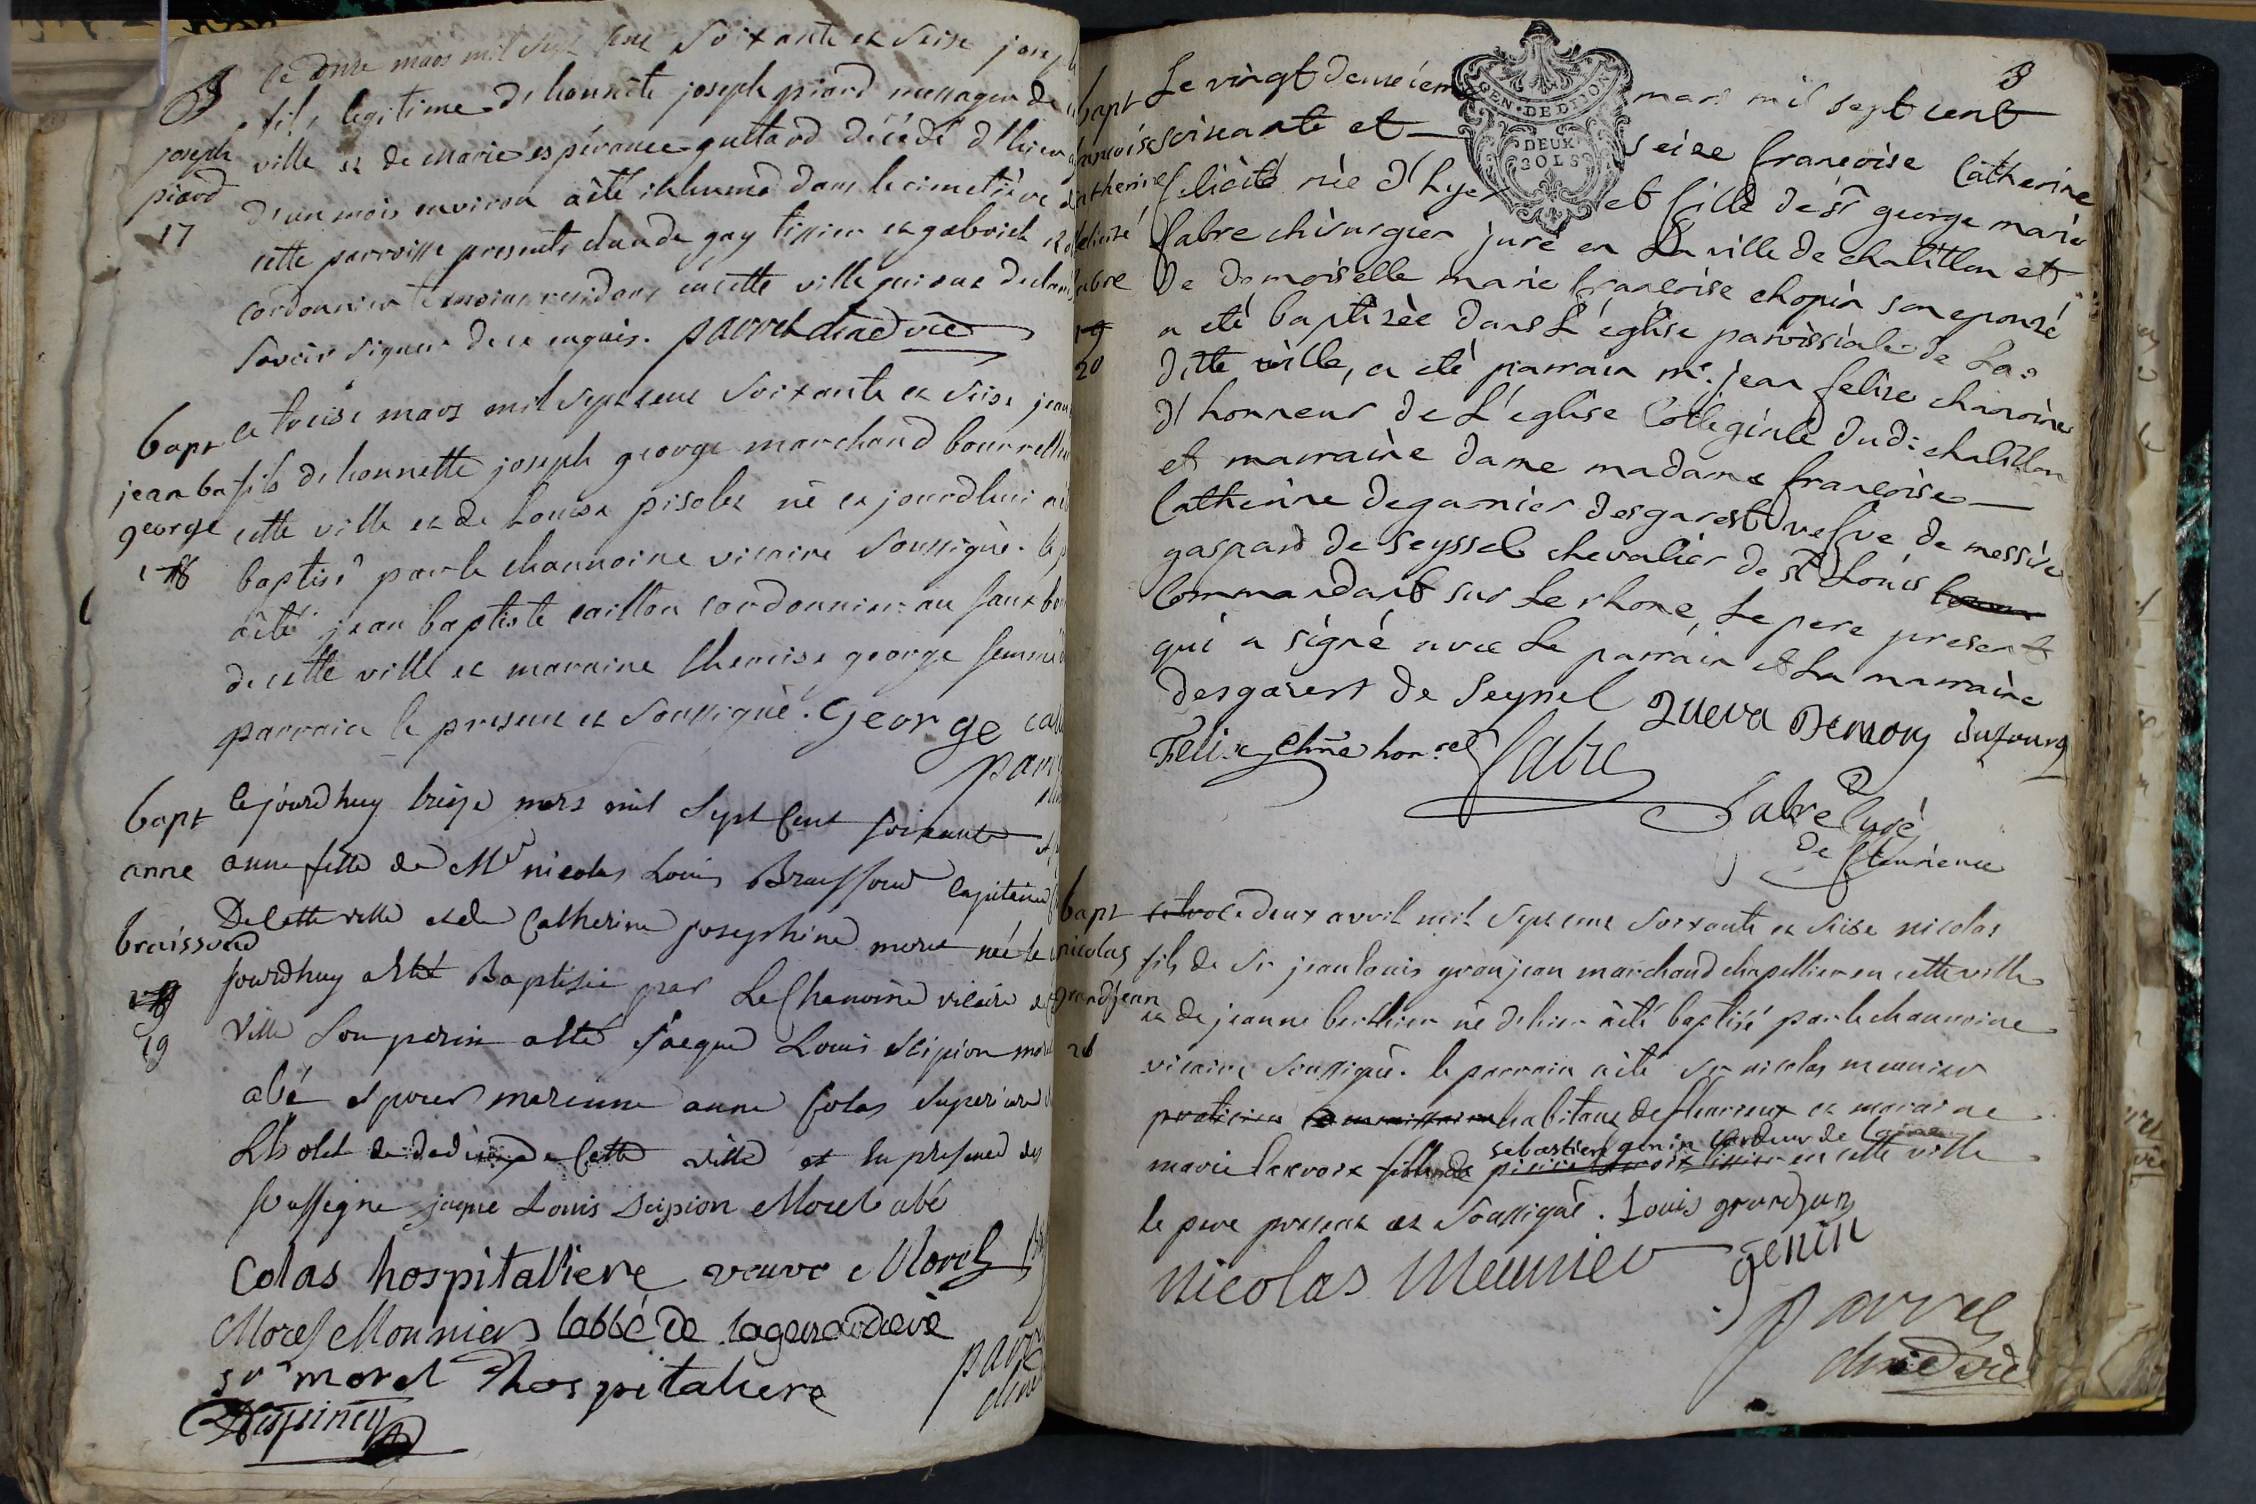 le onze mars mil sept cent soixante et seise joseph
fils legitime d'honnete joseph piard messager de
ville et de marie esperance guttard décédé d'hier agé
d'un mois environ a été inhumé dans le cimetière de
cette parroisse presents claude gay tissier et gabriel
cordonnier temoins residens en cette ville qui ont declaré
savoir signer de ce enquis. parrel chne vic
joseph
piard
17
bapt
jean ba
george
18
le treise mars mil sept cent soixante et seise jean
fils d'honnette joseph george marchand bourrellier
cette ville et de Louise pisolet né ce jourdhui
baptisé par le chanoine vicaire soussigné. le
a été jean baptiste caillon cordonnier au faux
de cette ville et maraine theraise george femme
parrain le present et soussigné. George
bapt
anne
braissoud
19
cejourdhuy treize mars mil sept cent soixante
anne fille de Mr nicolas Louis Braissoud Capitaine
De Cette ville et de Catherine josephine morel née le
jourdhuy a esté Baptisée par Le Chanoine vicaire de
ville son parin a été Jacque Louis scipion morel
abé et pour marenne anne Colas superieure
de Cette ville et en presence des
soussigne jaque Louis Scipion Morel abé
Colas hospitalliere veuve Morel
Morel Monnier labbé de lagerardiere
sr morel hospitaliere
Despiney
3
bapt
françoise
catherine
felicité
fabre
19
20
Le vingt deuxieme mars mil sept cent
soixante et seize françoise Catherine
felicité née d'hyer et fille de sr george marie
fabre chirurgien juré en La ville de chatillon et
De Demoiselle marie françoise chopin son epouse
a eté baptisée dans L'église paroissiale de La
ditte ville, a eté parrain mr. jean felix chanoine
d'honneur de L'eglise Collegiale dud: chatillon
et marraine dame madame françoise
Catherine degarnier desgarest veſve de messire
gaspard de seyssel chevalier de st Louis
Commandant sur Le rhone, Le pere present
qui a signé avec Le parrain et La marraine
desgarest de Seyssel
Félix chne honre Fabre
Fabre Curé
de fleurieux
GEN. DE DIJON
DEUX SOLS
bapt
nicolas
grandjean
le deux avril mil sept cent soixante et seise nicolas
fils de sr jean louis granjean marchand chapellier en cette ville
et de jeanne berthier né d'hier a été baptisé par le chanoine
vicaire soussigné. le parrain a été sr nicolas meunier
praticien habitant de fleurieux et maraine
sebastien genin cardeur de laine
marie en cette ville
le pere present et soussigné. Louis grandjean
nicolas Meunier genin
parrel
chne vic